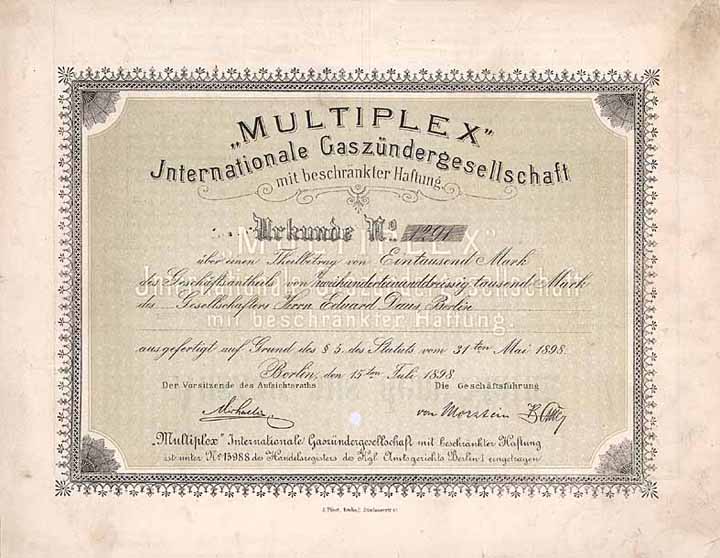 „MULTIPLEX"
Internationale Gaszündergesellschaft
mit beschränkter Haftung.
Urkunde No. 1291
über einen Theilbetrag von Eintausend Mark
des Geschäftsantheil von tausend Mark
des Gesellschafters Herrn Eduard Daus, Berlin
ausgefertigt auf Grund des § 5. des Statuts vom 31ten Mai 1898.
Berlin, den 15ten Juli 1898
Der Vorsitzende des Aufsichtsraths Die Geschäftsführung
Michaelis von Morstein
„Multiplex" Internationale Gaszündergesellschaft mit beschränkter Haftung
ist unter No. 15988 des Handelsregisters des Kgl. Amtsgerichts Berlin I eingetragen